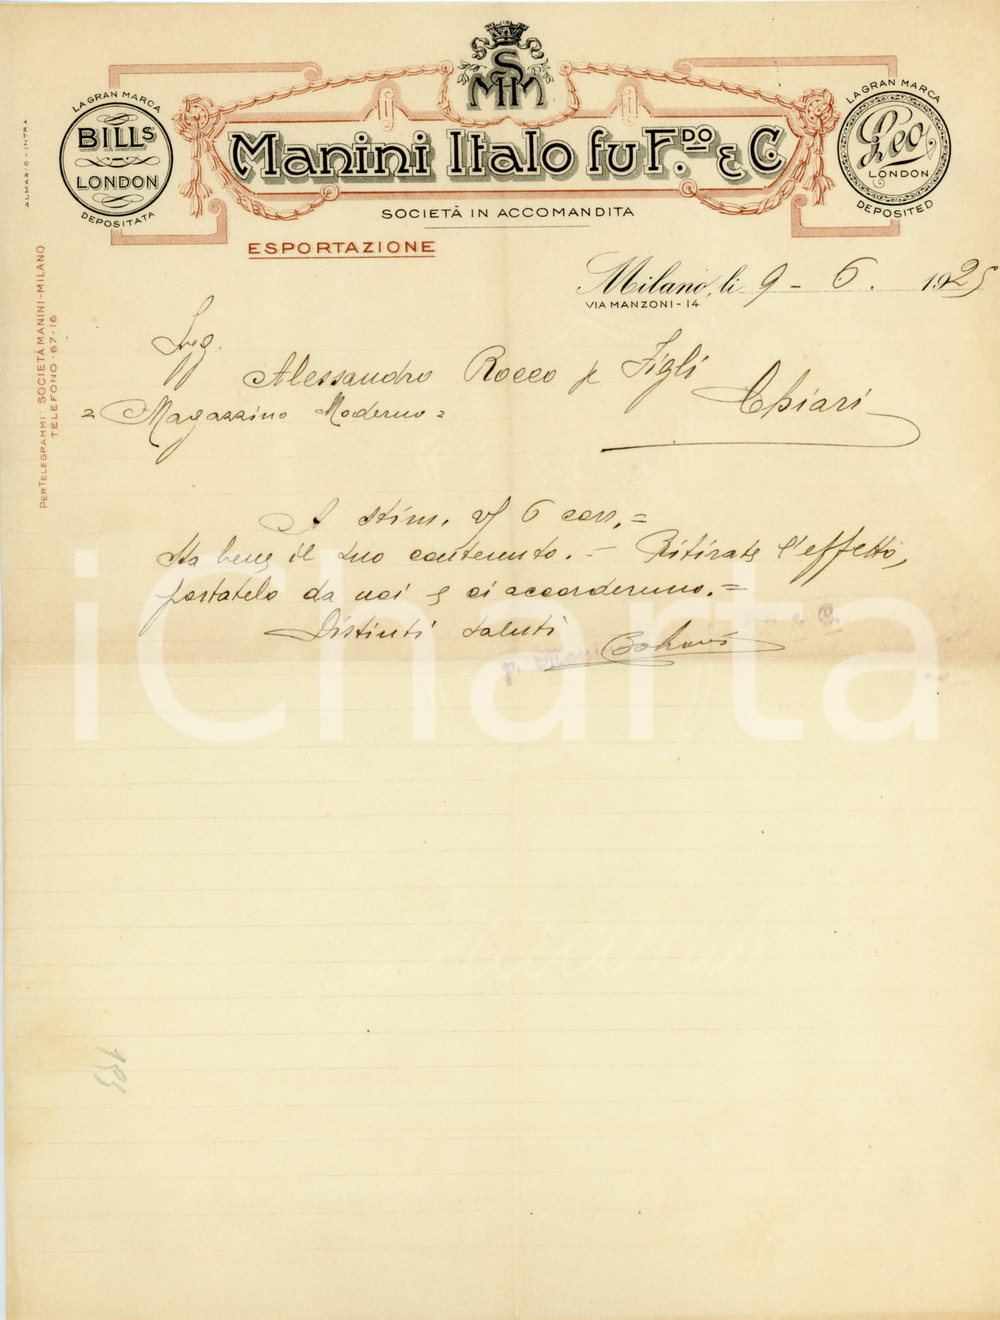 SMIM
LA GRAN MARCA
BILLS
LONDON
DEPOSITATA
Manini Italo fu F.DO & C.
LA GRAN MARCA
Leo
LONDON
DEPOSITED
SOCIETÀ IN ACCOMANDITA
ESPORTAZIONE
Milano, li 9 - 6. 1925
VIA MANZONI - 14
ALMASIO - INTRA
PER TELEGRAMMI: SOCIETÀ MANINI - MILANO
TELEFONO - 67-16
Alessandro Rocco & Figli
= Magazzino Moderno =
Chiari
A stim. 6 corr. =
Sta bene il suo contenuto. - Ritirate l'effetto,
portatelo da noi e ci accorderemo. =
Distinti saluti
iCharta